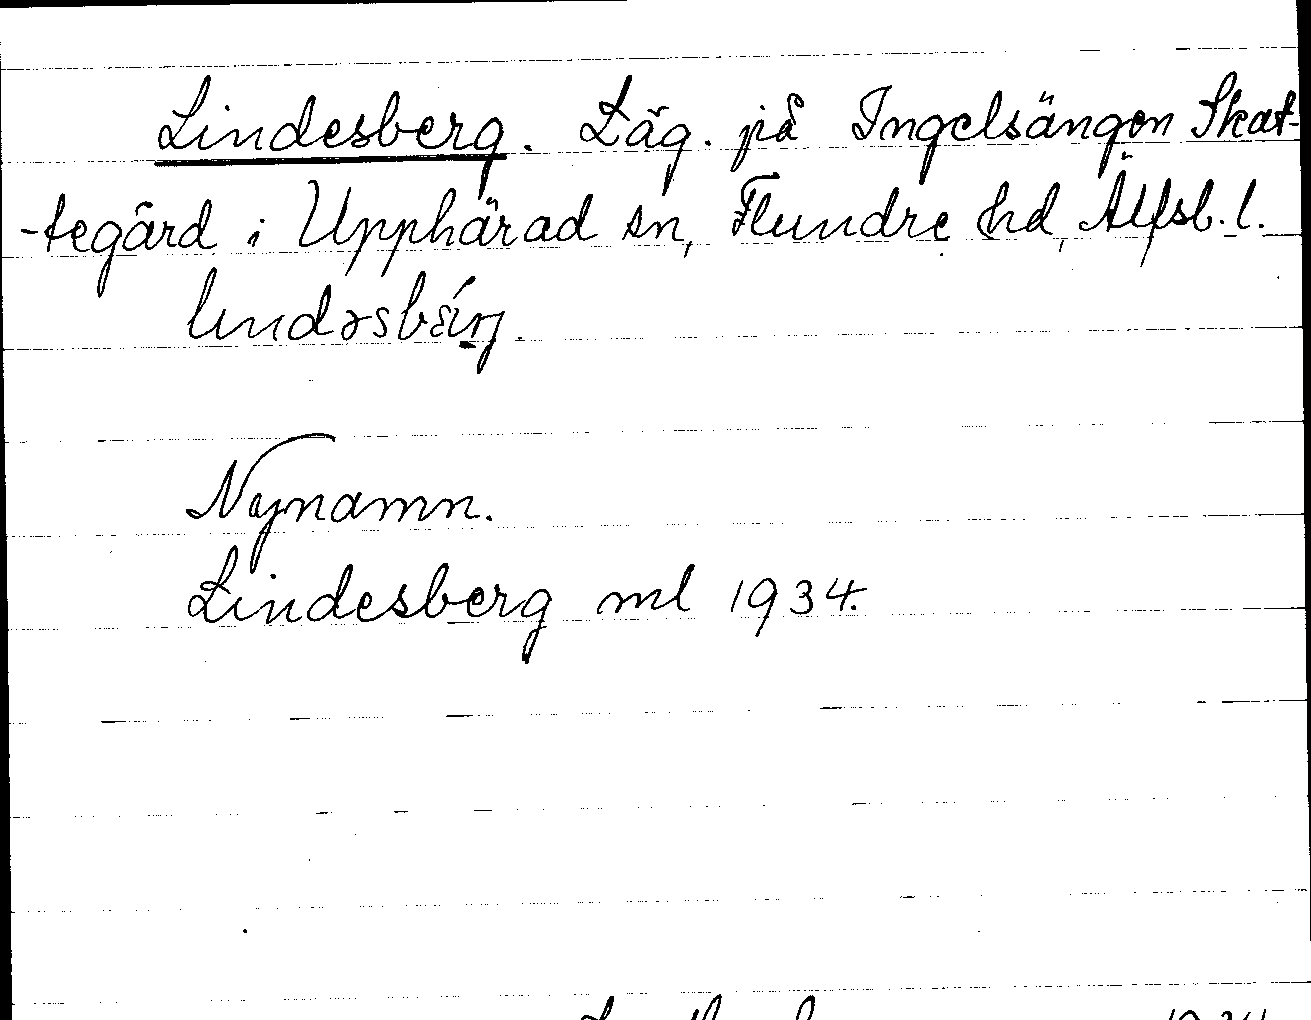 Lindesberg. Läg. på Ingelsängen Skat-
-tegård i Upphärad sn, Flundre hd, Älfsb. l.
Nynamn.
Lindesberg ml 1934.
1934